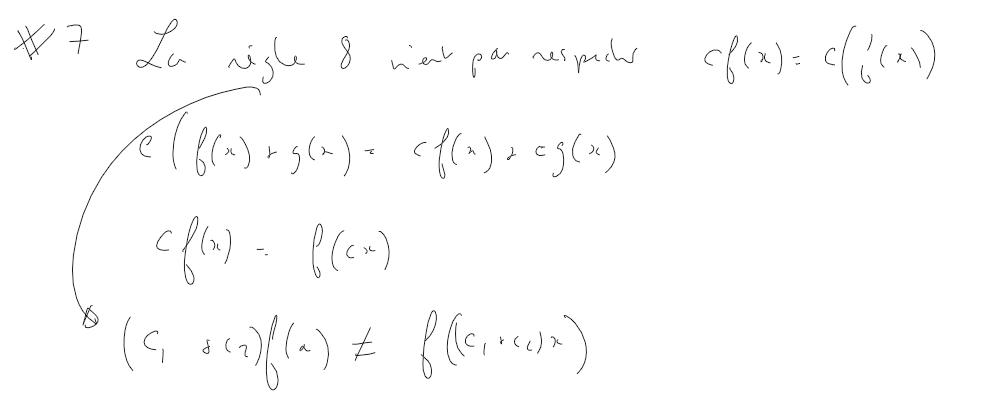 #7 La règle 8 n'est pas respectés cf(x) = c(f(x))
c(f(x) + g(x) = cf(x) + cg(x)
cf(x) = f(cx)
(c₁ + c₂)f(x) ≠ f((c₁ + c₂)x)